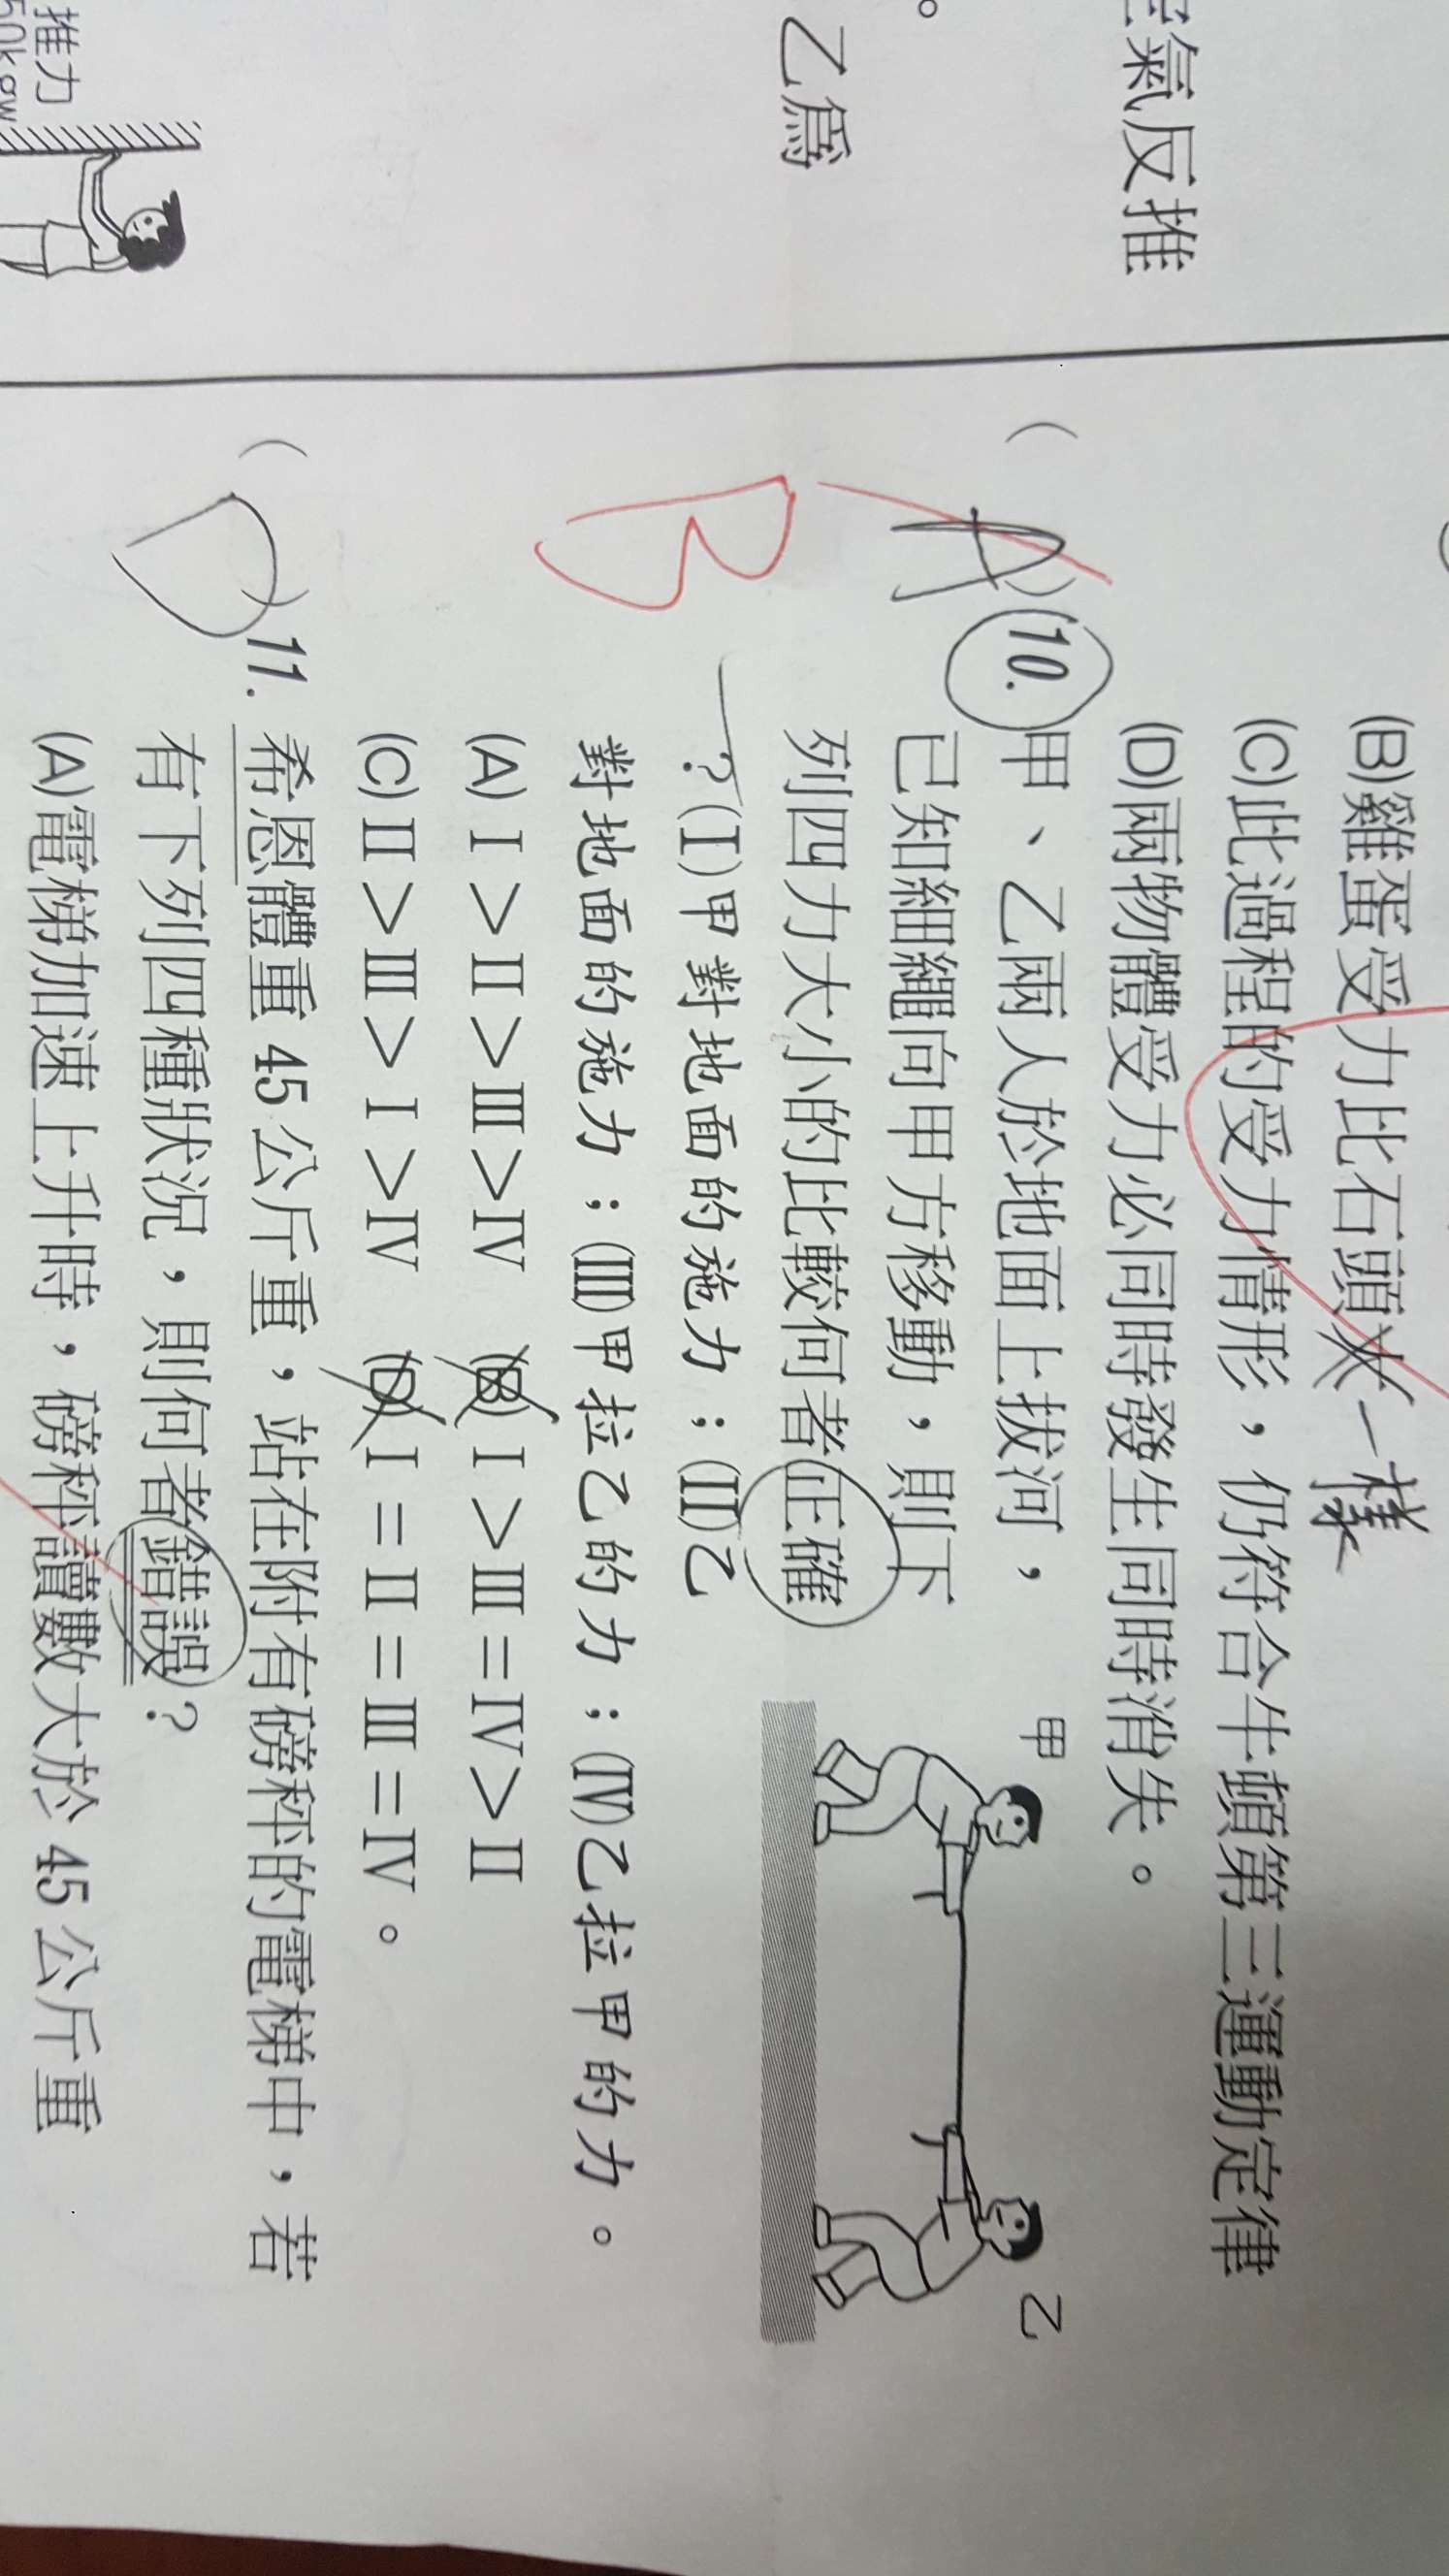 空氣反推
。
乙為
推力
50kgw
(B)雞蛋受力比石頭大一樣
(C)此過程的受力情形，仍符合牛頓第三運動定律
(D)兩物體受力必同時發生同時消失。
(A)10.甲、乙兩人於地面上拔河，
已知細繩向甲方移動，則下
列四力大小的比較何者正確
？(I)甲對地面的施力；(II)乙
對地面的施力；(III)甲拉乙的力；(IV)乙拉甲的力。
甲
乙
B
(A) I＞II＞III＞IV (B) I＞III＝IV＞II
(C) II＞III＞I＞IV (D) I＝II＝III＝IV。
(D)11.希恩體重 45 公斤重，站在附有磅秤的電梯中，若
有下列四種狀況，則何者錯誤？
(A)電梯加速上升時，磅秤讀數大於 45 公斤重